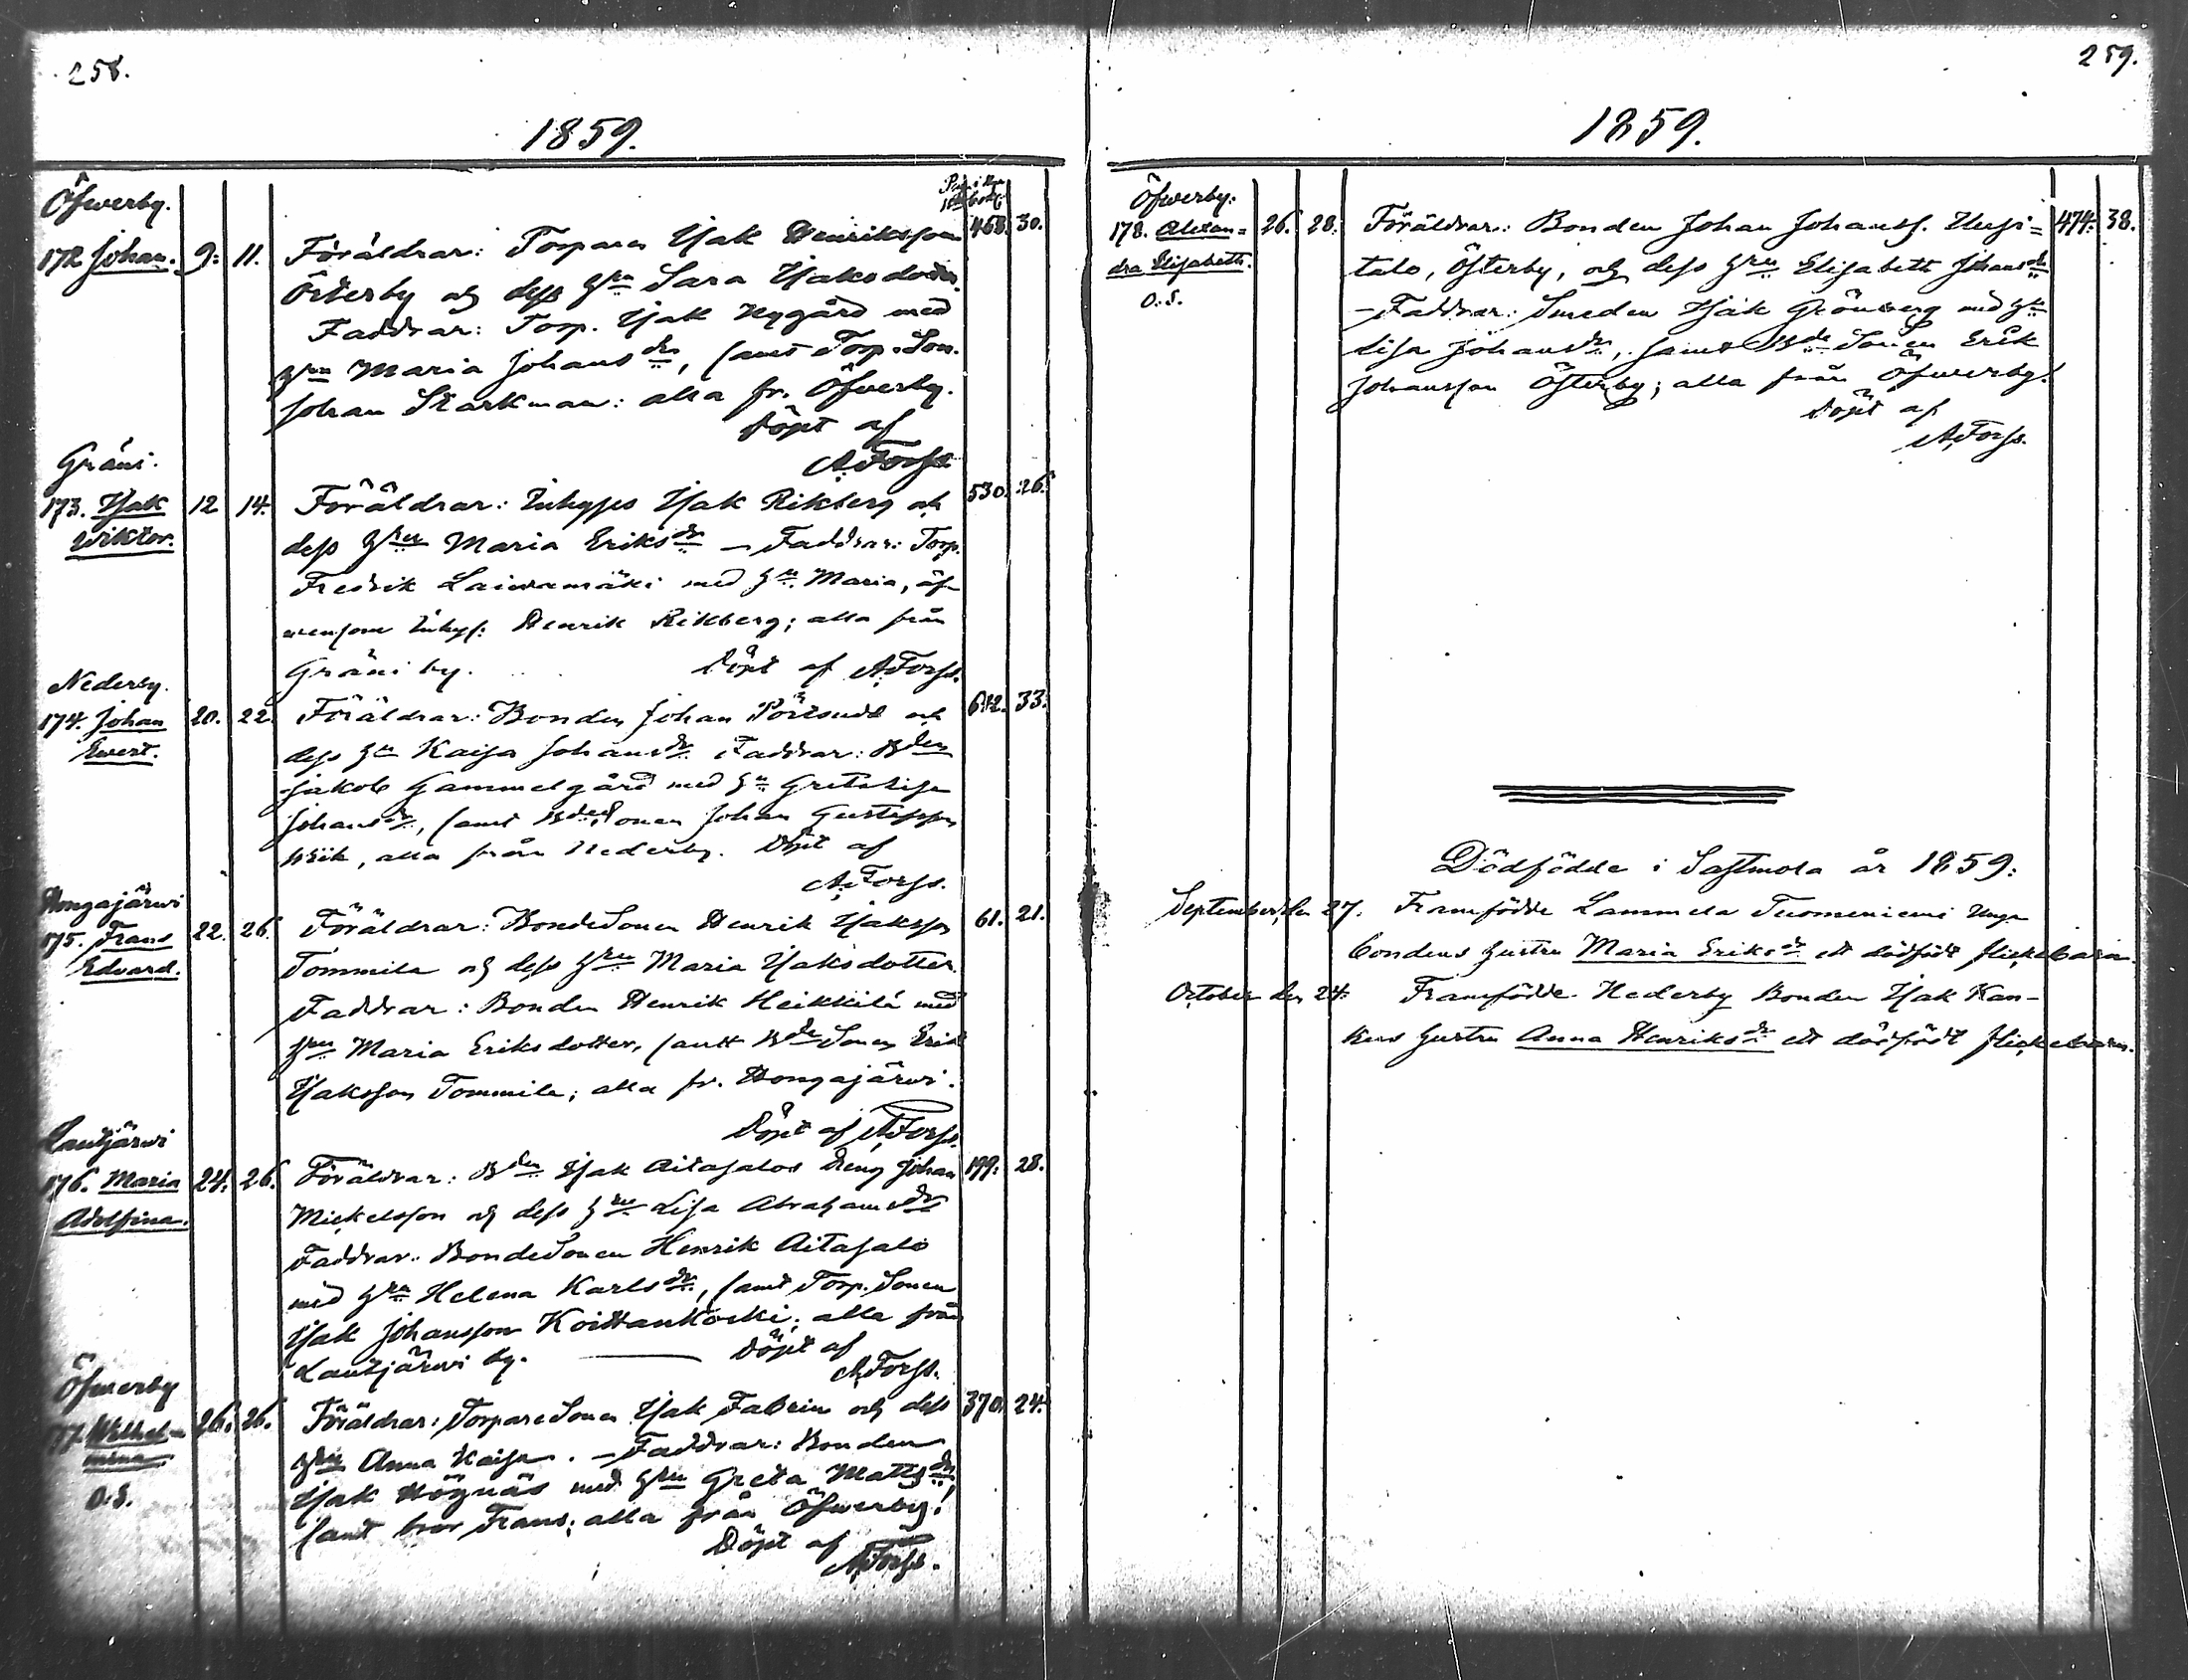 258.
1859.
Öfwerby.
172 Johan. 9. 11. Föräldrar: Torparen Isak Henriksson 468. 30.
Österby och dess Hru Sara Isaksdotter.
Faddrar: Torp. Isak Nygård med
Hru Maria Johansdr, samt Torp. Son.
Johan Starkman: alla fr. Öfverby.
Döpt af
A. Forss.
Gräni.
173. Isak 12 14. Föräldrar: Inhyses Isak Rikberg och 530. 26.
Wiktor. dess Hru Maria Eriksdr – Faddrar: Torp.
Fredrik Laiwamäki med Hru Maria, äf-
wensom Inhys: Henrik Rikberg; alla från
Gräni by. Döpt af A. Forss.
Nederby.
174. Johan 20. 22. Föräldrar: Bonden Johan Pörtsudd och 33.
Ewert. dess Hu Kaisa Johansdr Faddrar: Bden
Jakob Gammelgård med Hu Gretalisa
Johansdr, samt Bdesonen Johan Gustafsson
alla från Nederby. Döpt af
A. Forss.
Hongajärwi
175. Frans 22. 26. Föräldrar: BondeSonen Henrik Isaksson 61. 21.
Edvard. Tommila och dess Hru Maria Isaksdotter.
Faddrar: Bonden Henrik Heikkilä med
Hru Maria Eriksdotter, samt BdeSonen Erik
Isaksson Tommila; alla fr. Hongajärwi.
Döpt af A. Forss.
Lautjärwi
176. Maria 24. 26. Föräldrar: Bden Isak Aitasalos dreng Johan 199. 28.
Adolfina. Mickelsson och dess Hru Lisa Abrahamsdr
Faddrar: BondeSonen Henrik Aitasalo
med Hru Helena Karlsdr, samt Torp. Sonen
Isak Johansson Koittankoski; alla från
Lautjärwi by. — Döpt af
A. Forss.
Öfwerby
177. Wilhel- 26. 26. Föräldrar: TorpareSonen Isak Fabrin och dess 370. 24.
mina Hru Anna Kaisa. – Faddrar: Bonden
O.S. Isak Högnäs med Hru Greta Mattsdr,
samt bror Frans; alla från Öfwerby!
Döpt af
A. Forss.
259.
1859.
Öfwerby:
178. Alexan= 26. 28. Föräldrar: Bonden Johan Johanss. Uusi= 474. 38.
dra Elisabeth. talo, Österby, och dess Hru Elisabeth Johansdr
O.S. – Faddrar: Smeden Isak Grönberg med Hu
Lisa Johansdr, samt BdeSonen Erik
Johansson Österby; alla från Öfwerby!
Döpt af
A. Forss.
Dödfödde i Sastmola år 1859:
September den 27. Framfödde Lammela Tuomeniemi Unga
bondens hustru Maria Eriksdr ett dödfödt flickebarn.
October den 24. Framfödde Nederby Bonden Isak Kan-
kus hustru Anna Henriksdr ett dödfödt flickebarn.